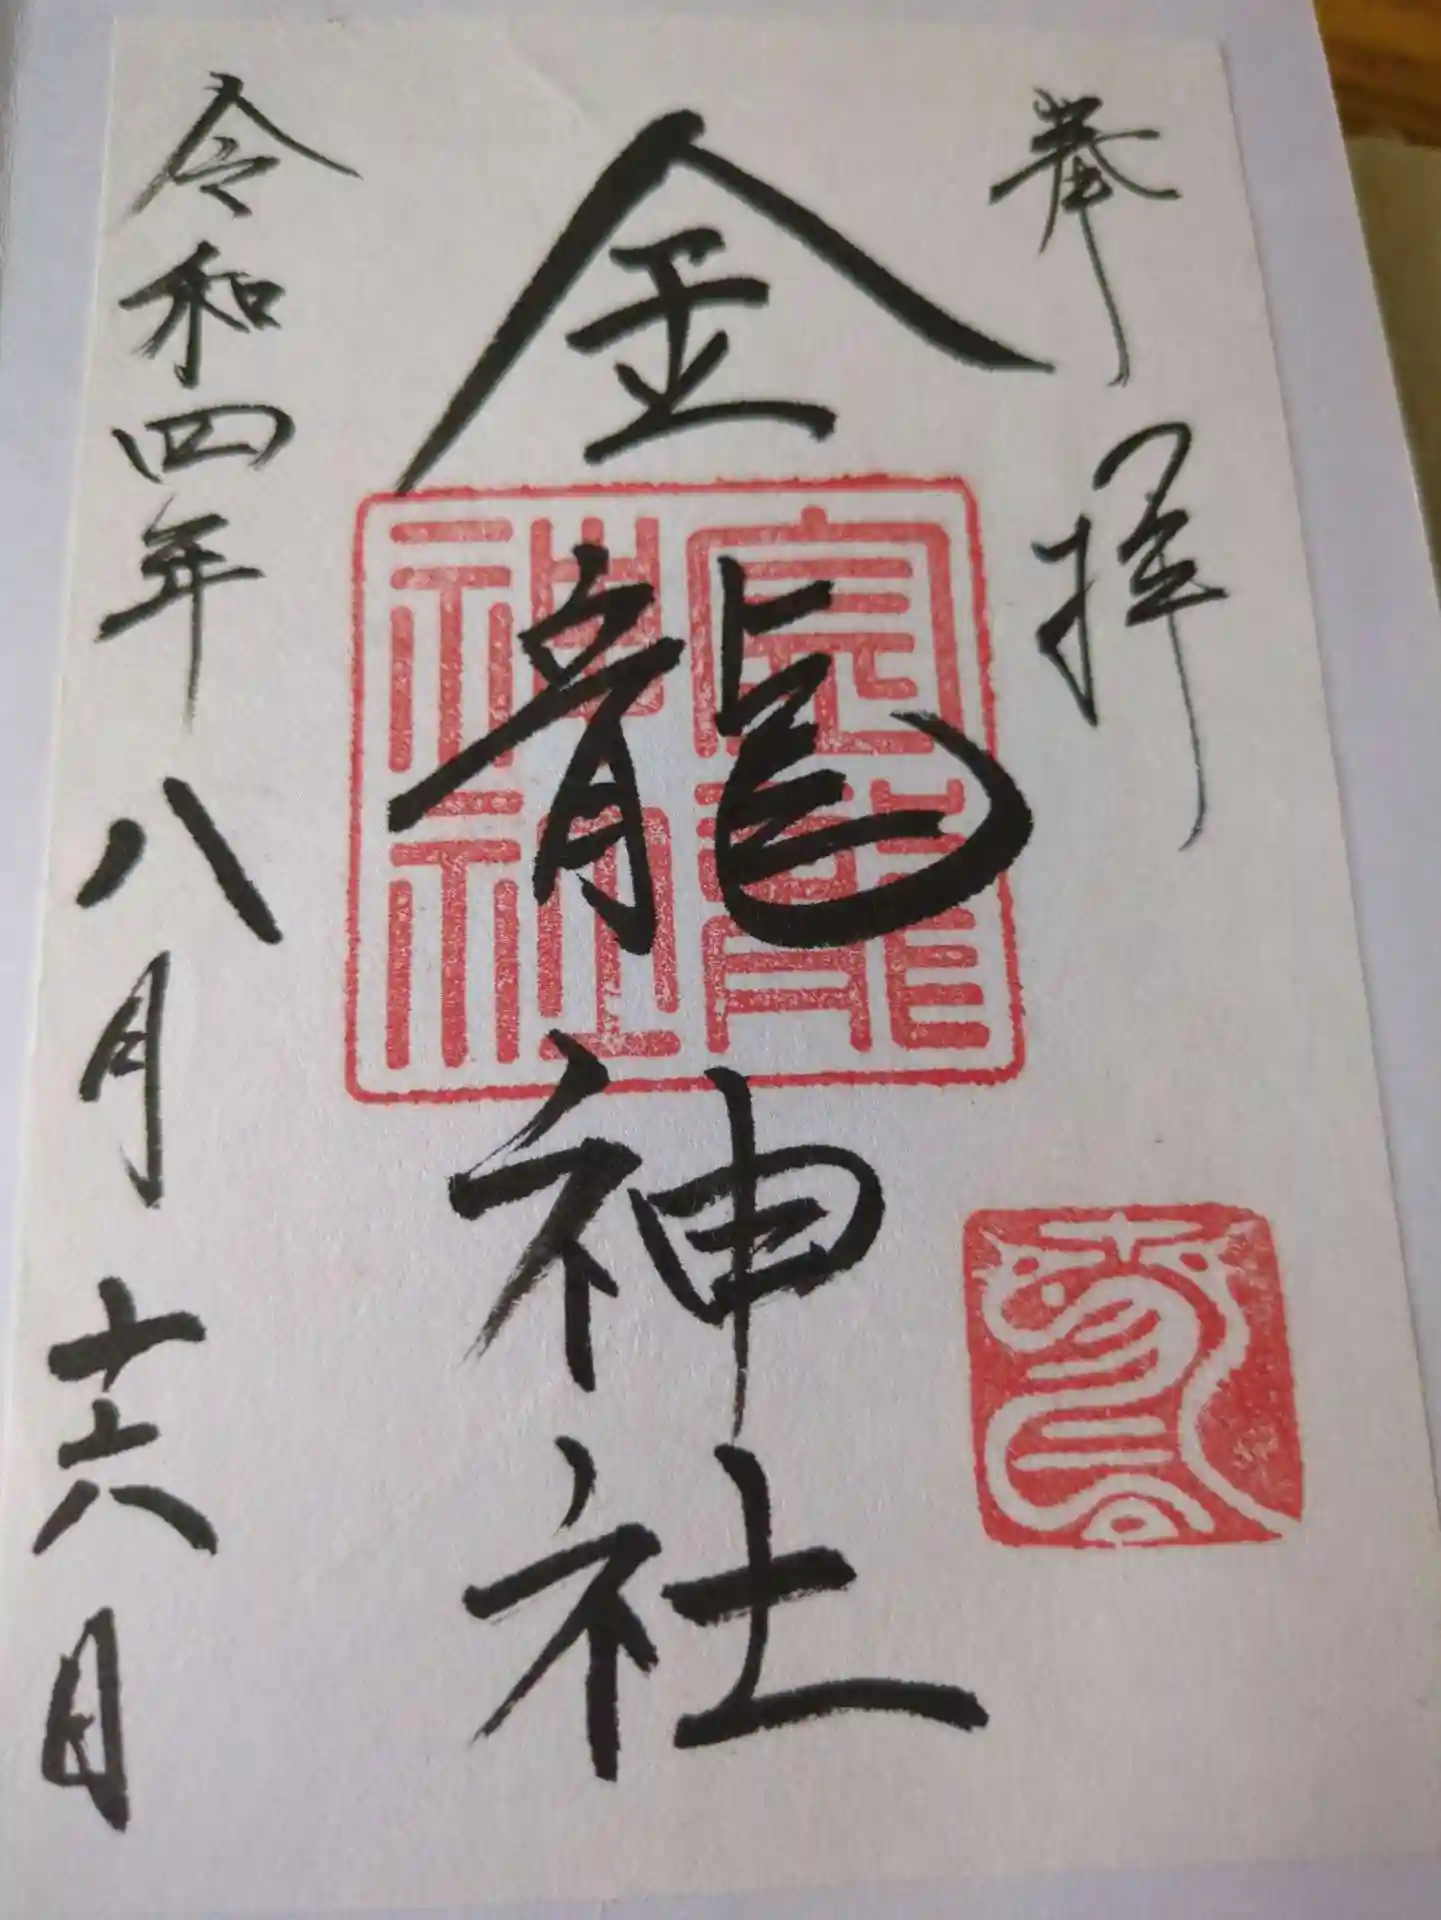 奉拝
金龍神社
令和四年八月十六日
龍
神社